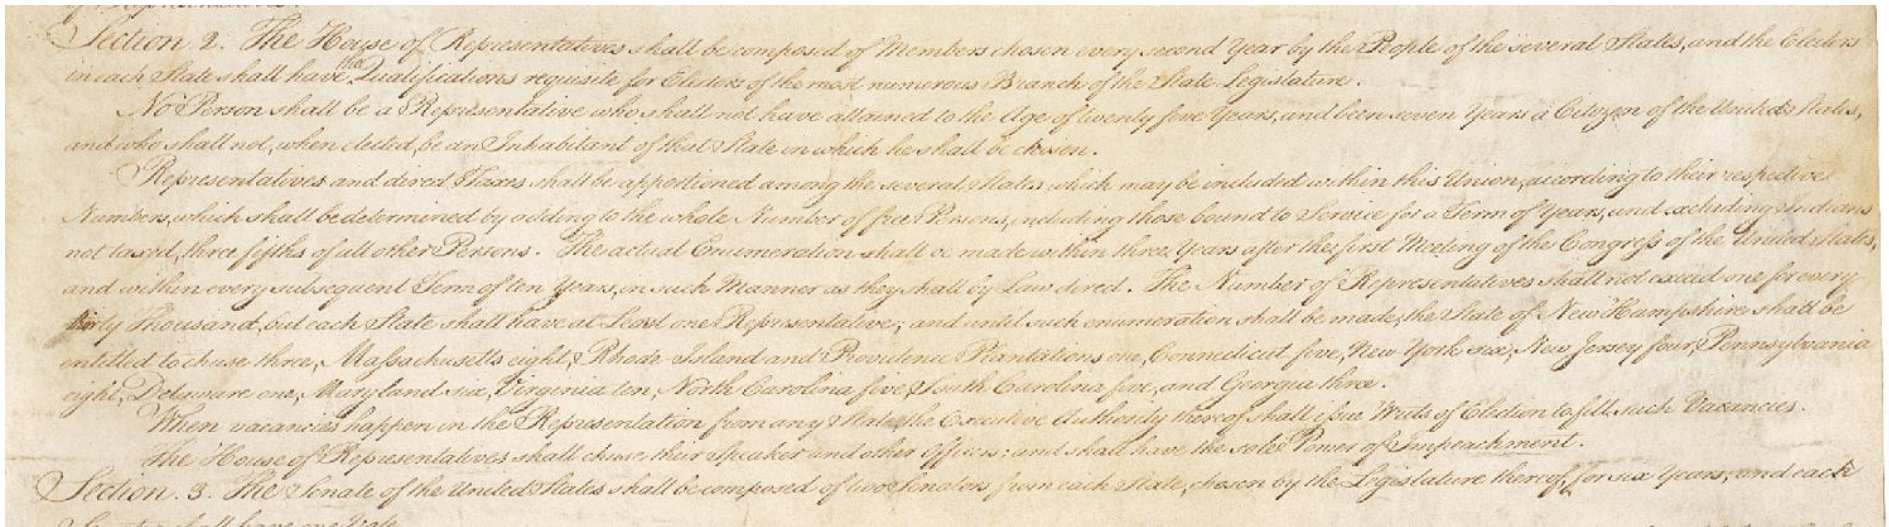 Section 2. The House of Representatives shall be composed of Members chosen every second Year by the People of the several States, and the Electors
in each State shall have the Qualifications requisite for Electors of the most numerous Branch of the State Legislature.
No Person shall be a Representative who shall not have attained to the Age of twenty five Years, and been seven Years a Citizen of the United States,
and who shall not, when elected, be an Inhabitant of that State in which he shall be chosen.
Representatives and direct Taxes shall be apportioned among the several States which may be included within this Union, according to their respective
Numbers, which shall be determined by adding to the whole Number of free Persons, including those bound to Service for a Term of Years, and excluding Indians
not taxed, three fifths of all other Persons. The actual Enumeration shall be made within three Years after the first Meeting of the Congress of the United States,
and within every subsequent Term of ten Years, in such Manner as they shall by Law direct. The Number of Representatives shall not exceed one for every
thirty Thousand, but each State shall have at Least one Representative; and until such enumeration shall be made, the State of New Hampshire shall be
entitled to chuse three, Massachusetts eight, Rhode Island and Providence Plantations one, Connecticut five, New York six, New Jersey four, Pennsylvania
eight, Delaware one, Maryland six, Virginia ten, North Carolina five, South Carolina five, and Georgia three.
When vacancies happen in the Representation from any State, the Executive Authority thereof shall issue Writs of Election to fill such Vacancies.
The House of Representatives shall chuse their Speaker and other Officers; and shall have the sole Power of Impeachment.
Section. 3. The Senate of the United States shall be composed of two Senators from each State, chosen by the Legislature thereof, for six Years; and each
Senator shall have one Vote.